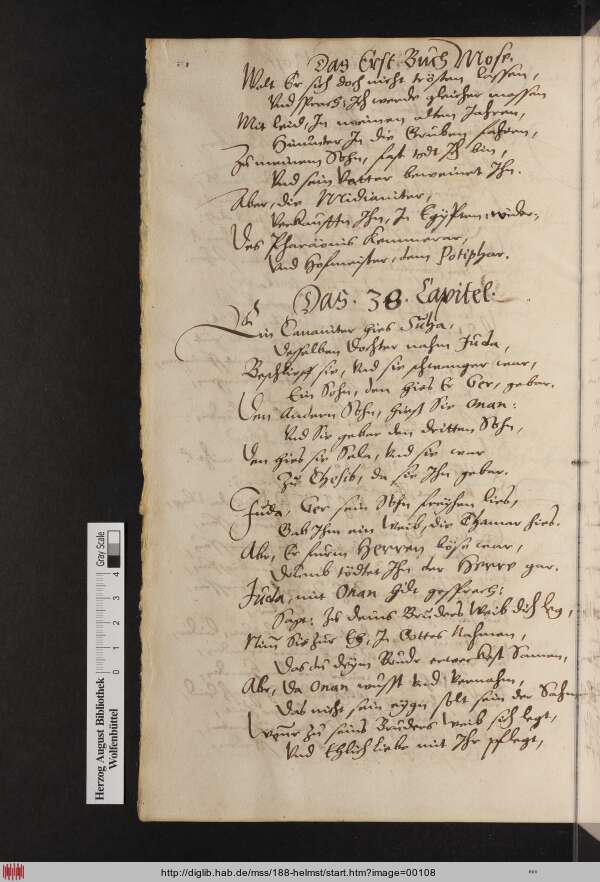 Das Erst Buch Mose.
Wolt Er sich doch nicht trösten lassen,
Vnd sprach: Ich werde gleicher massen
Mit leid, In meinen alten Jahren,
Hinunter In die Gruben fahren,
Zu meinem Sohn, fast todt Ich bin,
Vnd sein Vatter beweinet Ihn.
Aber, die Midianiter,
Verkaufftn Ihn, In Egÿpten, wider,
Des Pharäonis Kemmerar,
Vnd Hofmeister, dem Potiphar.
Das. 38. Capitel.
Ein Cananiter hies Suha,
Desselben Dochter nahm Juda,
Beschlieff sie, Vnd sie schwanger war,
Ein Sohn, den hies Er Ger, gebar.
Den Andern Sohn, hiess Sie Onan:
Vnd Sie gebar den dritten Sohn,
Den hies sie Sela, Vnd sie war
Zu Chesib, da sie Ihn gebar.
Juda, Ger sein Sohn freyhen lies,
Gab Ihm ein Weib, die Thamar hies.
Aber, Er furm Herren böse war,
Drumb tödtet Ihn der Herre gar.
Juda, mit Onan hat gesprach:
Sagt: Zu deins Bruders Weib dich leg,
Nim Sie zur Eh, In Gottes Nahmen,
Das du deÿm Brudr erweckst Samen,
Aber, da Onan wusst Vnd Vernahm,
Das nicht sein eÿgn solt sein der Sahm
Wenn zu seins Bruders Weib sich legt,
Vnd Ehlich liebe mit Ihr pflegt,
Herzog August Bibliothek
Wolfenbüttel
0 1 2 3 4
Gray Scale
http://diglib.hab.de/mss/188-helmst/start.htm?image=00108